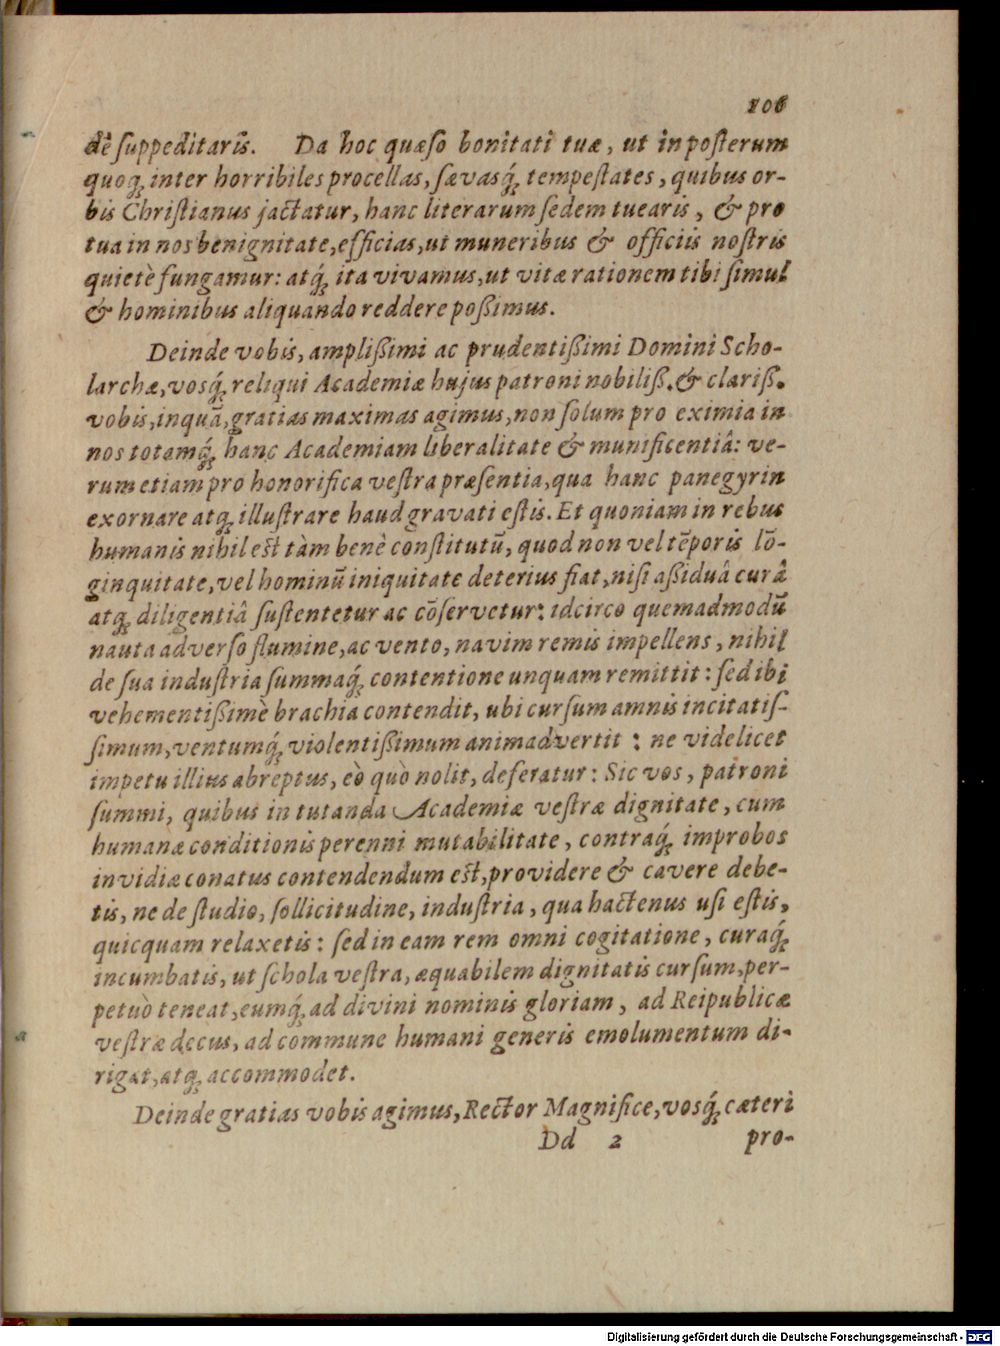 106
dē suppeditaris. Da hoc quæso bonitati tuæ, ut in posterum
quoq́; inter horribiles procellas, sævasq́; tempestates, quibus or-
bis Christianus jactatur, hanc literarum sedem tuearis, & pro
tua in nos benignitate, efficias, ut muneribus & officiis nostris
quietè fungamur: atq́; ita vivamus, ut vitæ rationem tibi simul
& hominibus aliquando reddere poßimus.
Deinde vobis, amplißimi ac prudentißimi Domini Scho-
larchæ, vosq́; reliqui Academiæ hujus patroni nobiliß. & clariß.
vobis, inquã, gratias maximas agimus, non solum pro eximia in
nos totamq́; hanc Academiam liberalitate & munificentiâ: ve-
rum etiam pro honorifica vestra præsentia, qua hanc panegyrin
exornare atq; illustrare haud gravati estis. Et quoniam in rebus
humanis nihil est tàm benè constitutũ, quod non vel tẽporis lõ-
ginquitate, vel hominũ iniquitate deterius fiat, nisi aßiduâ curâ
atq; diligentiâ sustentetur ac cõservetur: idcirco quemadmodũ
nauta adverso flumine, ac vento, navim remis impellens, nihil
de sua industria summaq́; contentione unquam remittit: sed ibi
vehementißimè brachia contendit, ubi cursum amnis incitatis-
simum, ventumq́; violentißimum animadvertit: ne videlicet
impetu illius abreptus, eò quò nolit, deferatur: Sic vos, patroni
summi, quibus in tutanda Academiæ vestræ dignitate, cum
humanæ conditionis perenni mutabilitate, contraq́; improbos
invidiæ conatus contendendum est, providere & cavere debe-
tis, ne de studio, sollicitudine, industria, qua hactenus usi estis,
quicquam relaxetis: sed in eam rem omni cogitatione, curaq́;
incumbatis, ut schola vestra, æquabilem dignitatis cursum, per-
petuò teneat, eumq́; ad divini nominis gloriam, ad Reipublicæ
vestræ decus, ad commune humani generis emolumentum di-
rigat, atq; accommodet.
Deinde gratias vobis agimus, Rector Magnifice, vosq́; cæteri
Dd 2 pro-
Digitalisierung gefördert durch die Deutsche Forschungsgemeinschaft - DFG